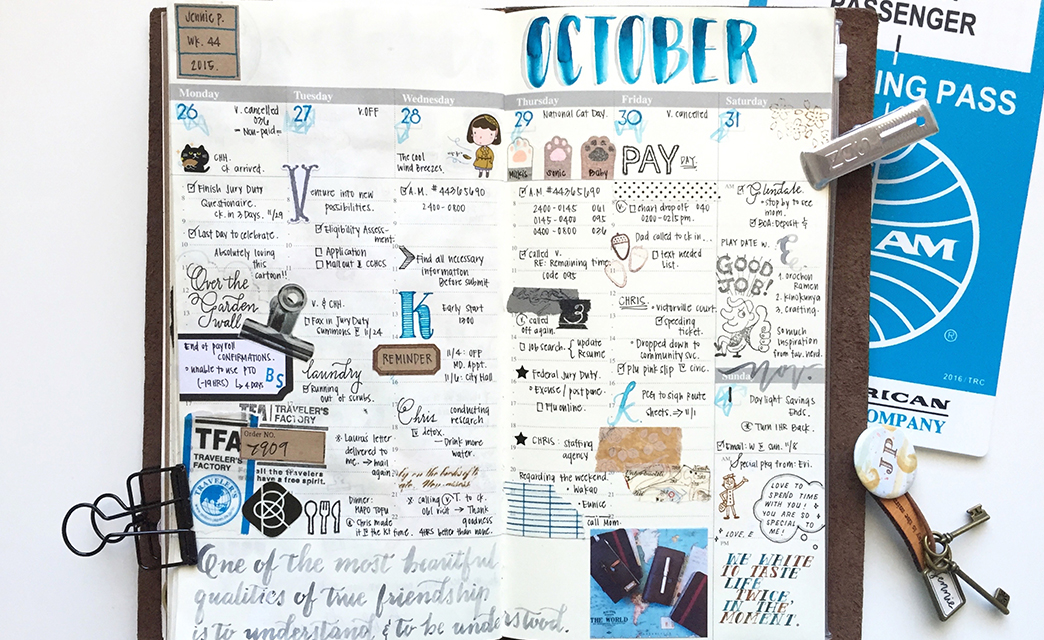 Jennie P.
WK. 44
2015.
OCTOBER
PASSENGER
ING PASS
AM
®
2016/TRC
RICAN
COMPANY
Monday
26
V. cancelled
036
- Non-paid
CHH.
ck arrived.
Finish Jury Duty
Questionaire.
ck. in 3 Days. 11/29
Last Day to celebrate.
Absolutely loving
this
cartoon!!
Over the
Garden
wall
End of payroll
CONFIRMATIONS.
unable to use PTO
(-19HRS) ↳ 4 days
BS
Tuesday
27
V.OFF
Venture into new
possibilities.
Eligibility Assess-
ment.
Application
Mail out
V. & CHH.
Fax in Jury Duty
summons 11/24
laundry
Running
out of scrubs.
TFA | TRAVELER'S
FACTORY
TFA
TRAVELER'S
FACTORY
Order NO.
7909
all the travelers
have a free spirit.
TRAVELER'S
Laura's letter
delivered to
me. → mail
again
Dinner:
MAPO TOFU
Chris made
Wednesday
28
The cool
wind Breezes.
A.M. #44365690
2400-0800
Find all necessary
information
Before submit
K
Early start
1300
REMINDER
11/4: OFF
MD. Appt.
11/6: City Hall
Chris
conducting
research
detox.
- Drink more
water.
calling V.T. to ck.
061 visit → Thank
goodness
4HRS better than none.
Thursday
29
National Cat Day.
Mikis
Sonic
Baby
A.M #44365690
2400-0145 061
0145-0400 095
0400-0800 036
called V.
RE: Remaining time.
code 095
3
V. called
off again.
Job search. { update
Resume
Federal Jury Duty.
Excuse/postpone.
Flu online.
CHRIS: staffing
agency
Regarding the weekend.
• Wakao
• Eunice
call Mom.
Friday
30
V. cancelled
PAY DAY.
V. chart drop off 040
0200-0215pm.
Dad called to ck in...
text needed
list.
CHRIS.
• Victorville court
speeding
ticket.
• Dropped down to
community svc.
Flu pink slip civic.
k
PCG to sign route
sheets. → 11/1
THE WORLD
Saturday
31
Glendale
• stop by to see
mom.
BoA: Deposit
PLAY DATE W. E
GOOD
JOB!
1. orochon
Ramen
2. kinokunya
3. crafting.
so much
inspiration
from trav. nerd.
nov.
Sunday
1
Daylight Savings
Ends.
Turn 1HR Back.
Email: W E sun. 11/8
Special pkg from Evi.
LOVE TO
SPEND TIME
WITH YOU!
YOU ARE
SO
SPECIAL TO
ME!
LOVE, E
WE WRITE
TO TASTE
LIFE
TWICE,
IN THE
MOMENT.
One of the most beautiful
qualities of true friendship
is to understand & to be understood.
JP
Jennie